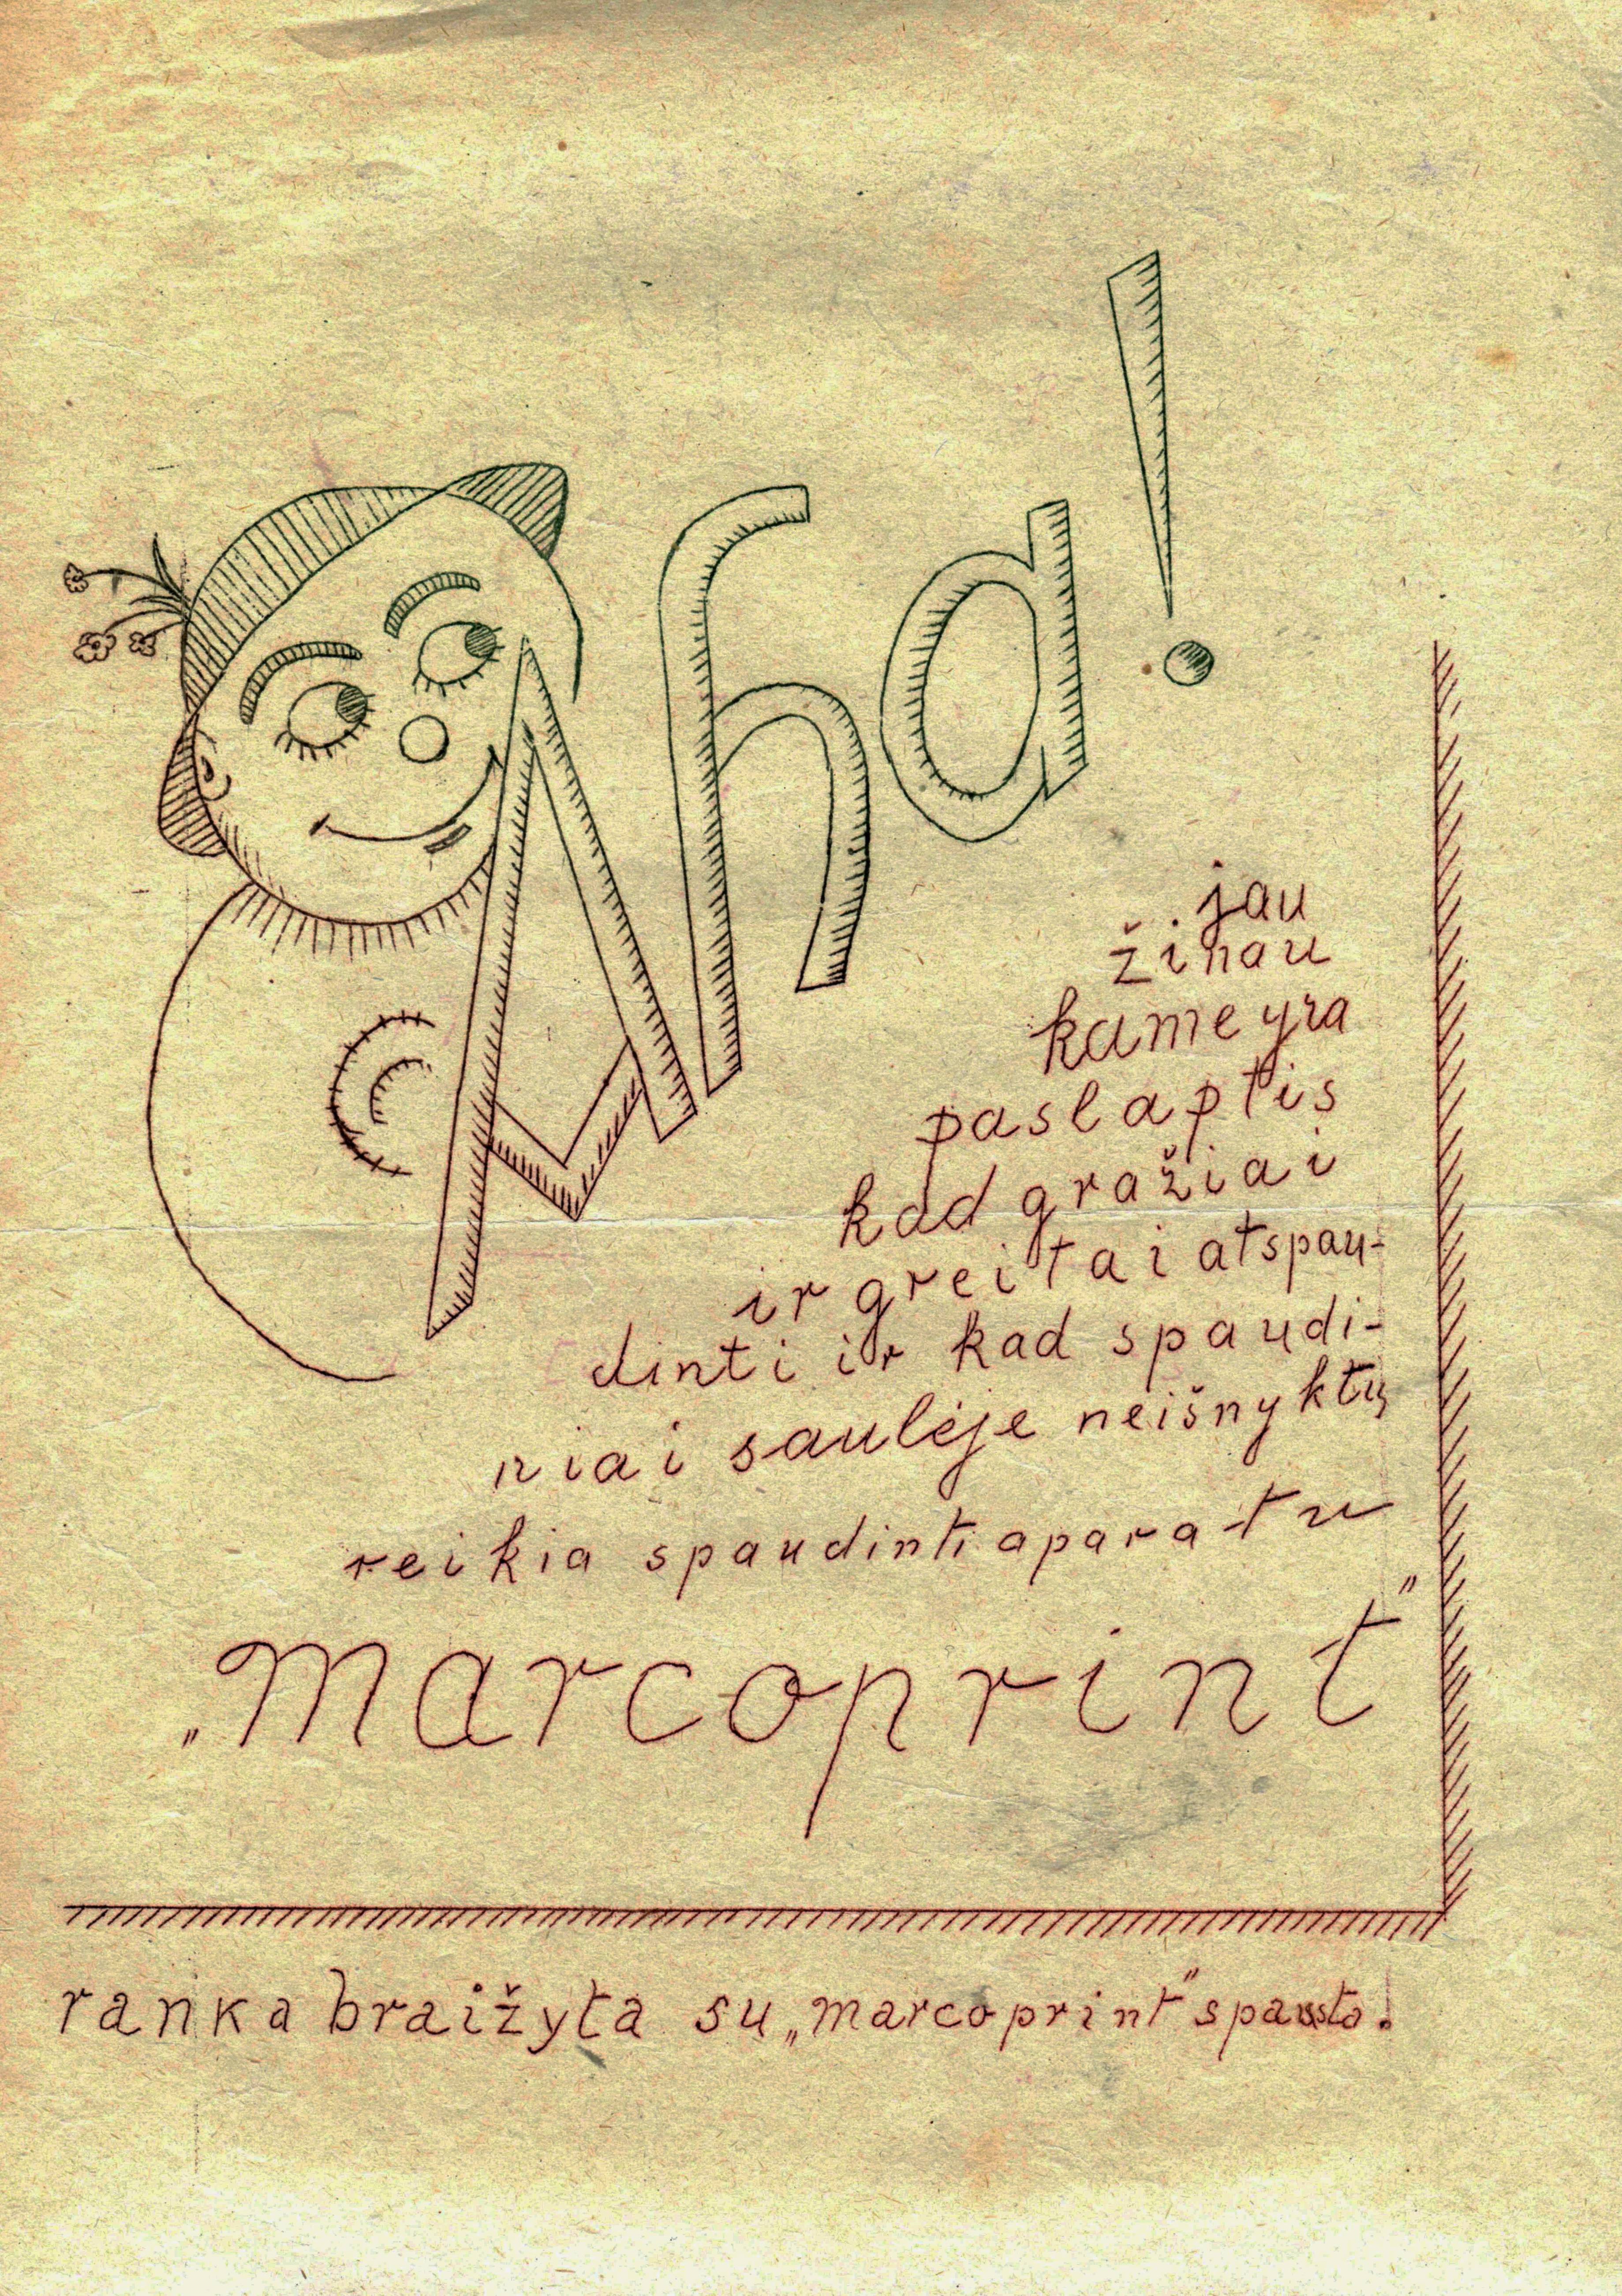 Aha!
jau
žinau
kame yra
paslaptis
kad gražiai
ir greitai atspau-
dinti ir kad spaudi-
niai saulėje neišnyktų
reikia spaudinti aparatu
„marcoprint”
ranka braižyta su „marcoprint” spausta.